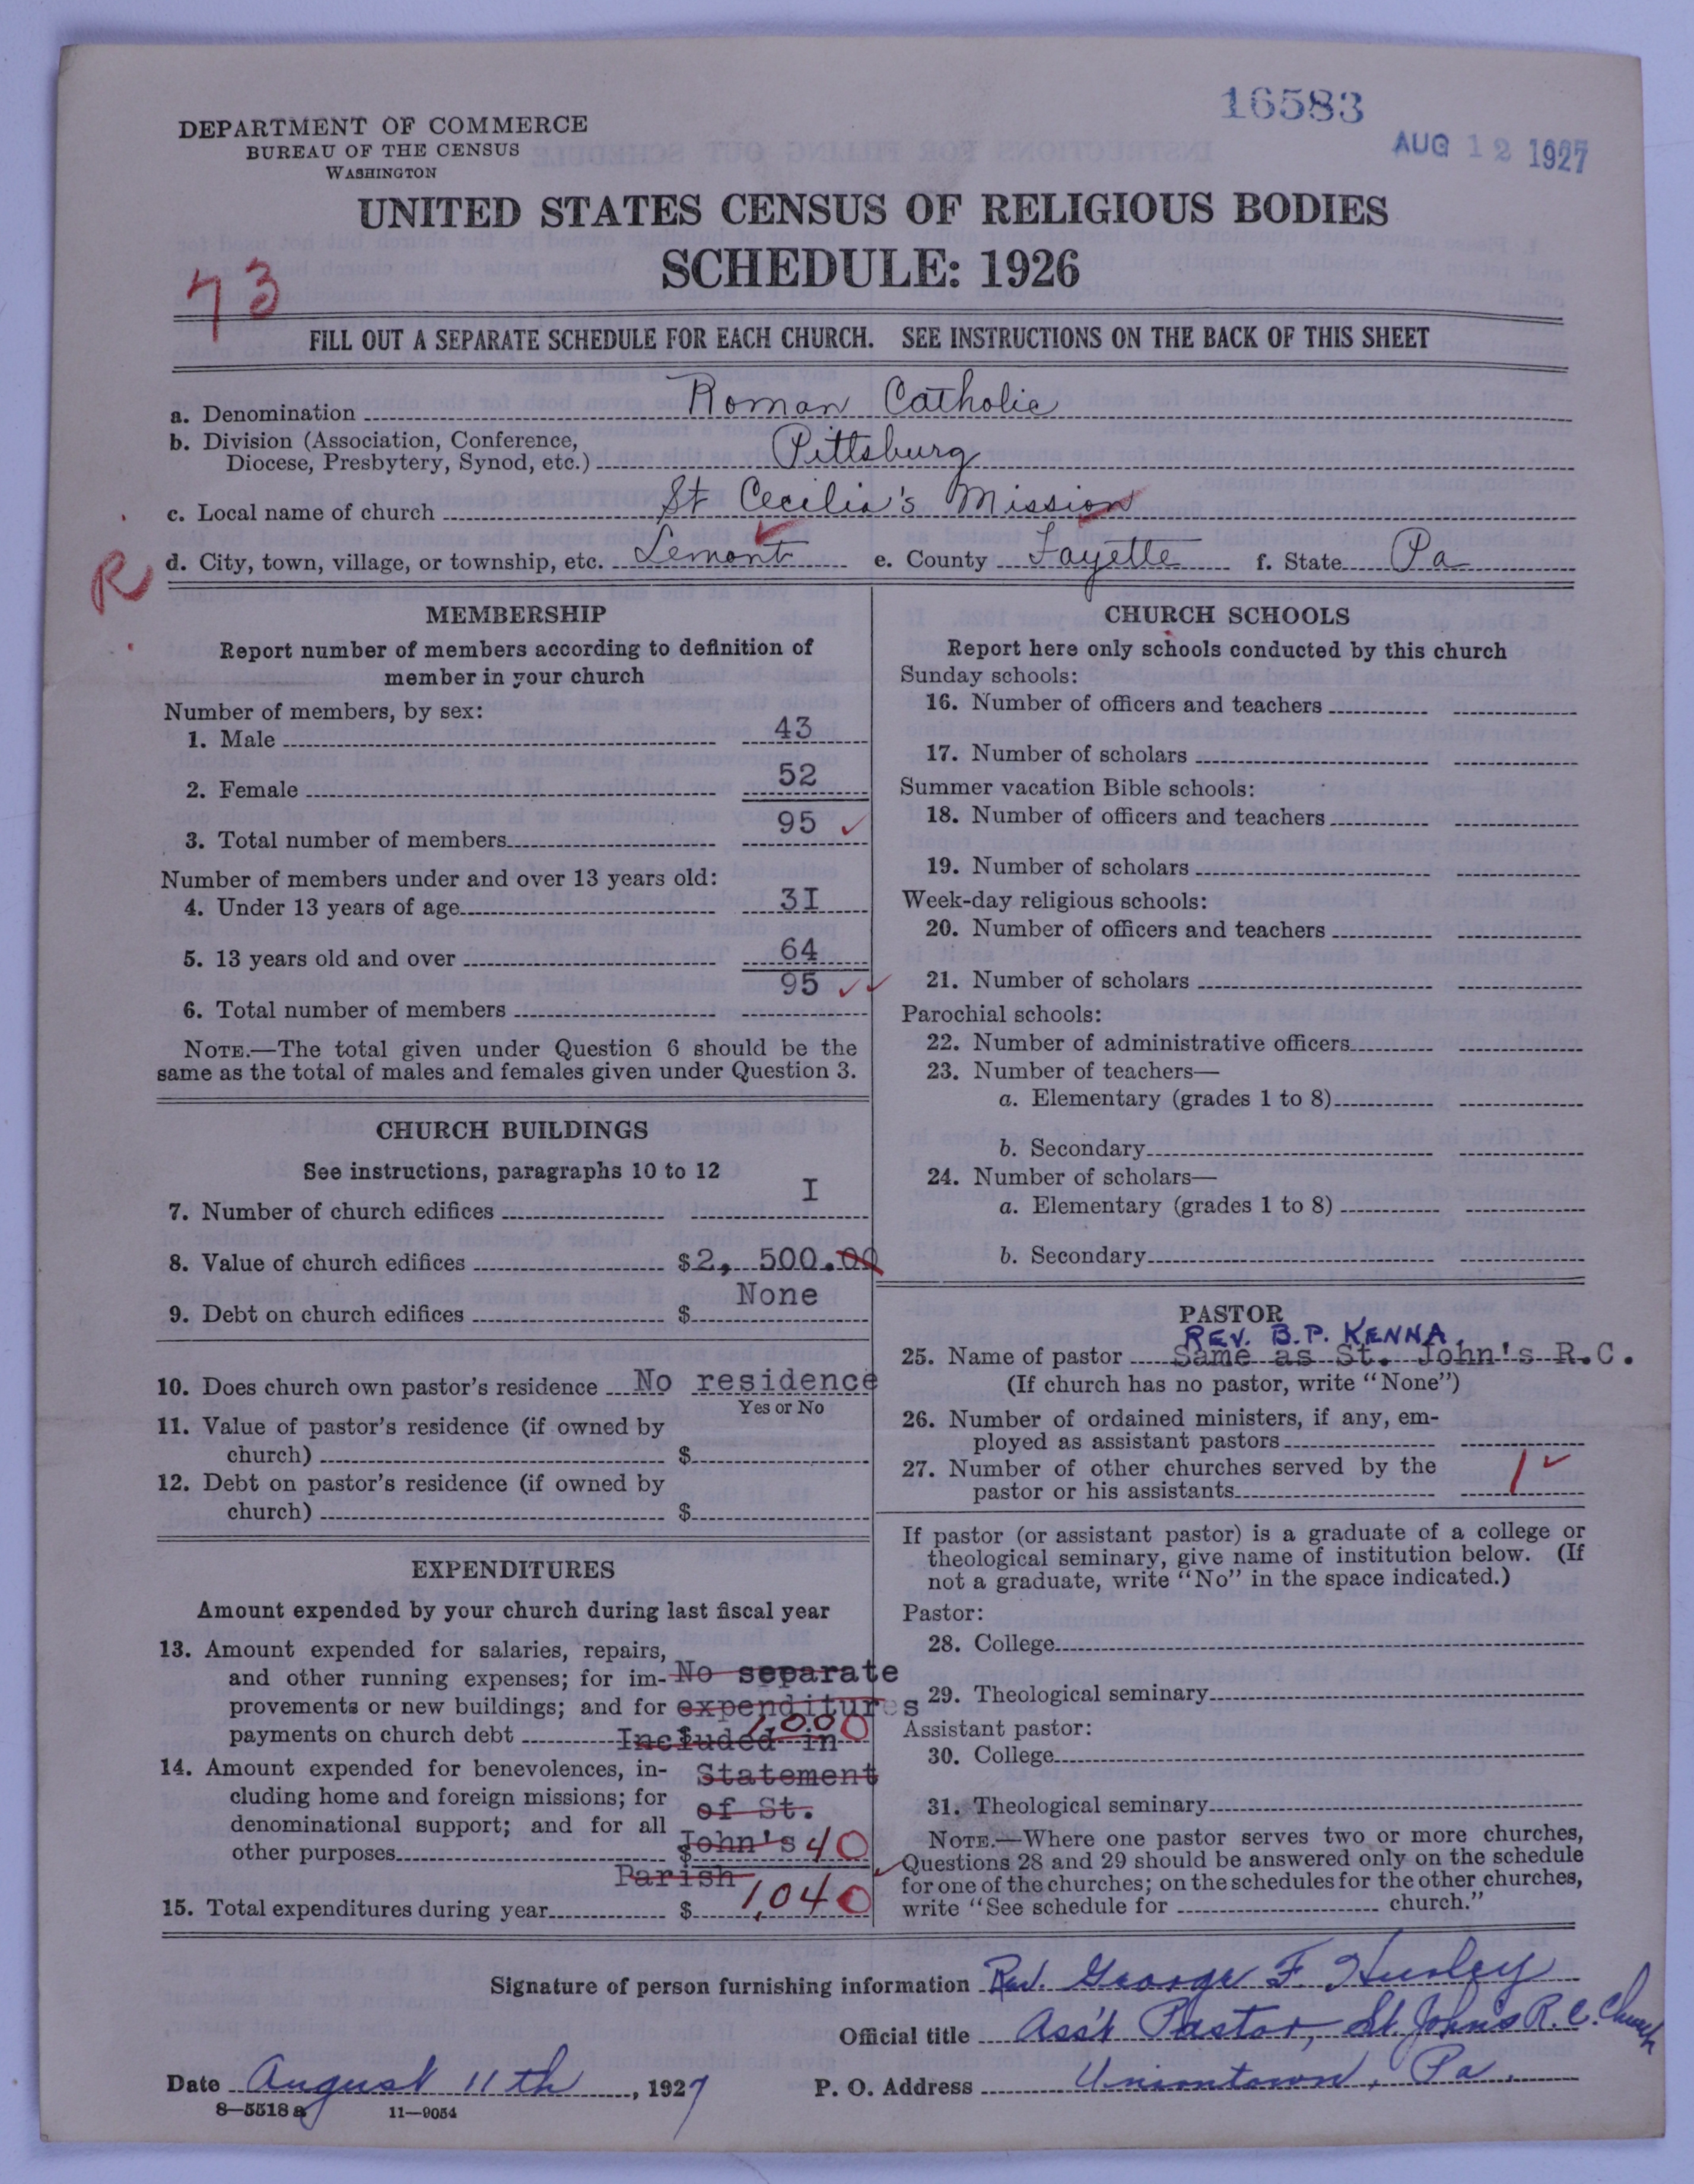 16583
AUG 12 1927
DEPARTMENT OF COMMERCE
BUREAU OF THE CENSUS
WASHINGTON
UNITED STATES CENSUS OF RELIGIOUS BODIES
SCHEDULE: 1926
73
FILL OUT A SEPARATE SCHEDULE FOR EACH CHURCH. SEE INSTRUCTIONS ON THE BACK OF THIS SHEET
a. Denomination Roman Catholic
b. Division (Association, Conference,
Diocese, Presbytery, Synod, etc.) Pittsburg
c. Local name of church St Cecilia's Mission
R
d. City, town, village, or township, etc. Lemont e. County Fayette f. State Pa
MEMBERSHIP
Report number of members according to definition of
member in your church
Number of members, by sex:
1. Male 43
2. Female 52
3. Total number of members 95 ✓
Number of members under and over 13 years old:
4. Under 13 years of age 3I
5. 13 years old and over 64
6. Total number of members 95 ✓✓
NOTE.—The total given under Question 6 should be the
same as the total of males and females given under Question 3.
CHURCH BUILDINGS
See instructions, paragraphs 10 to 12
7. Number of church edifices I
8. Value of church edifices $2, 500.00
9. Debt on church edifices $ None
10. Does church own pastor's residence No residence
Yes or No
11. Value of pastor's residence (if owned by
church) $
12. Debt on pastor's residence (if owned by
church) $
EXPENDITURES
Amount expended by your church during last fiscal year
13. Amount expended for salaries, repairs,
and other running expenses; for im- No separate
provements or new buildings; and for expenditures
payments on church debt $ Included in 1,000
14. Amount expended for benevolences, in- Statement
cluding home and foreign missions; for of St.
denominational support; and for all John's
other purposes $ 40
Parish
15. Total expenditures during year $ 1,040
CHURCH SCHOOLS
Report here only schools conducted by this church
Sunday schools:
16. Number of officers and teachers
17. Number of scholars
Summer vacation Bible schools:
18. Number of officers and teachers
19. Number of scholars
Week-day religious schools:
20. Number of officers and teachers
21. Number of scholars
Parochial schools:
22. Number of administrative officers
23. Number of teachers—
a. Elementary (grades 1 to 8)
b. Secondary
24. Number of scholars—
a. Elementary (grades 1 to 8)
b. Secondary
PASTOR
REV. B.P. KENNA
25. Name of pastor Same as St. John's R.C.
(If church has no pastor, write "None")
26. Number of ordained ministers, if any, em-
ployed as assistant pastors
27. Number of other churches served by the
pastor or his assistants 1 ✓
If pastor (or assistant pastor) is a graduate of a college or
theological seminary, give name of institution below. (If
not a graduate, write "No" in the space indicated.)
Pastor:
28. College
29. Theological seminary
Assistant pastor:
30. College
31. Theological seminary
NOTE.—Where one pastor serves two or more churches,
Questions 28 and 29 should be answered only on the schedule
for one of the churches; on the schedules for the other churches,
write "See schedule for church."
Signature of person furnishing information Rev. George F. Hurley
Official title Ass't Pastor, St. John's R.C. Church
Date August 11th, 1927 P. O. Address Uniontown, Pa.
8—5518 a 11—9054